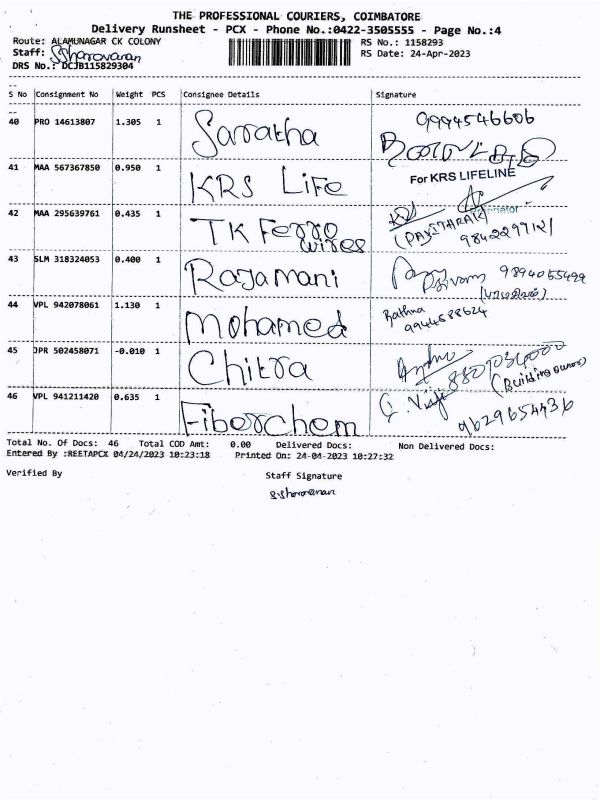 THE PROFESSIONAL COURIERS, COIMBATORE
Delivery Runsheet - PCX - Phone No.:0422-3505555 - Page No.:4
Route: ALAMUNAGAR CK COLONY RS No.: 1158293
Staff: SSharavanan RS Date: 24-Apr-2023
DRS No.: DCJB115829304
S No Consignment No Weight PCS Consignee Details Signature
40 PRO 14613807 1.305 1 Saratha 9994546606
41 MAA 567367850 0.950 1 KRS Life For KRS LIFELINE
Proprietor
42 MAA 295639761 0.435 1 TK Ferro wires (PAVITHRAK)
9842297121
43 SLM 318324053 0.400 1 Rajamani 9894055499
44 VPL 942078061 1.130 1 Mohamed Rathna
9944588624
45 JPR 502458071 -0.010 1 Chitra (Building owner)
46 VPL 941211420 0.635 1 Fiberchem G. Viji 9629654436
Total No. Of Docs: 46 Total COD Amt: 0.00 Delivered Docs: Non Delivered Docs:
Entered By :REETAPCX 04/24/2023 10:23:18 Printed On: 24-04-2023 10:27:32
Verified By Staff Signature
SSharavanan